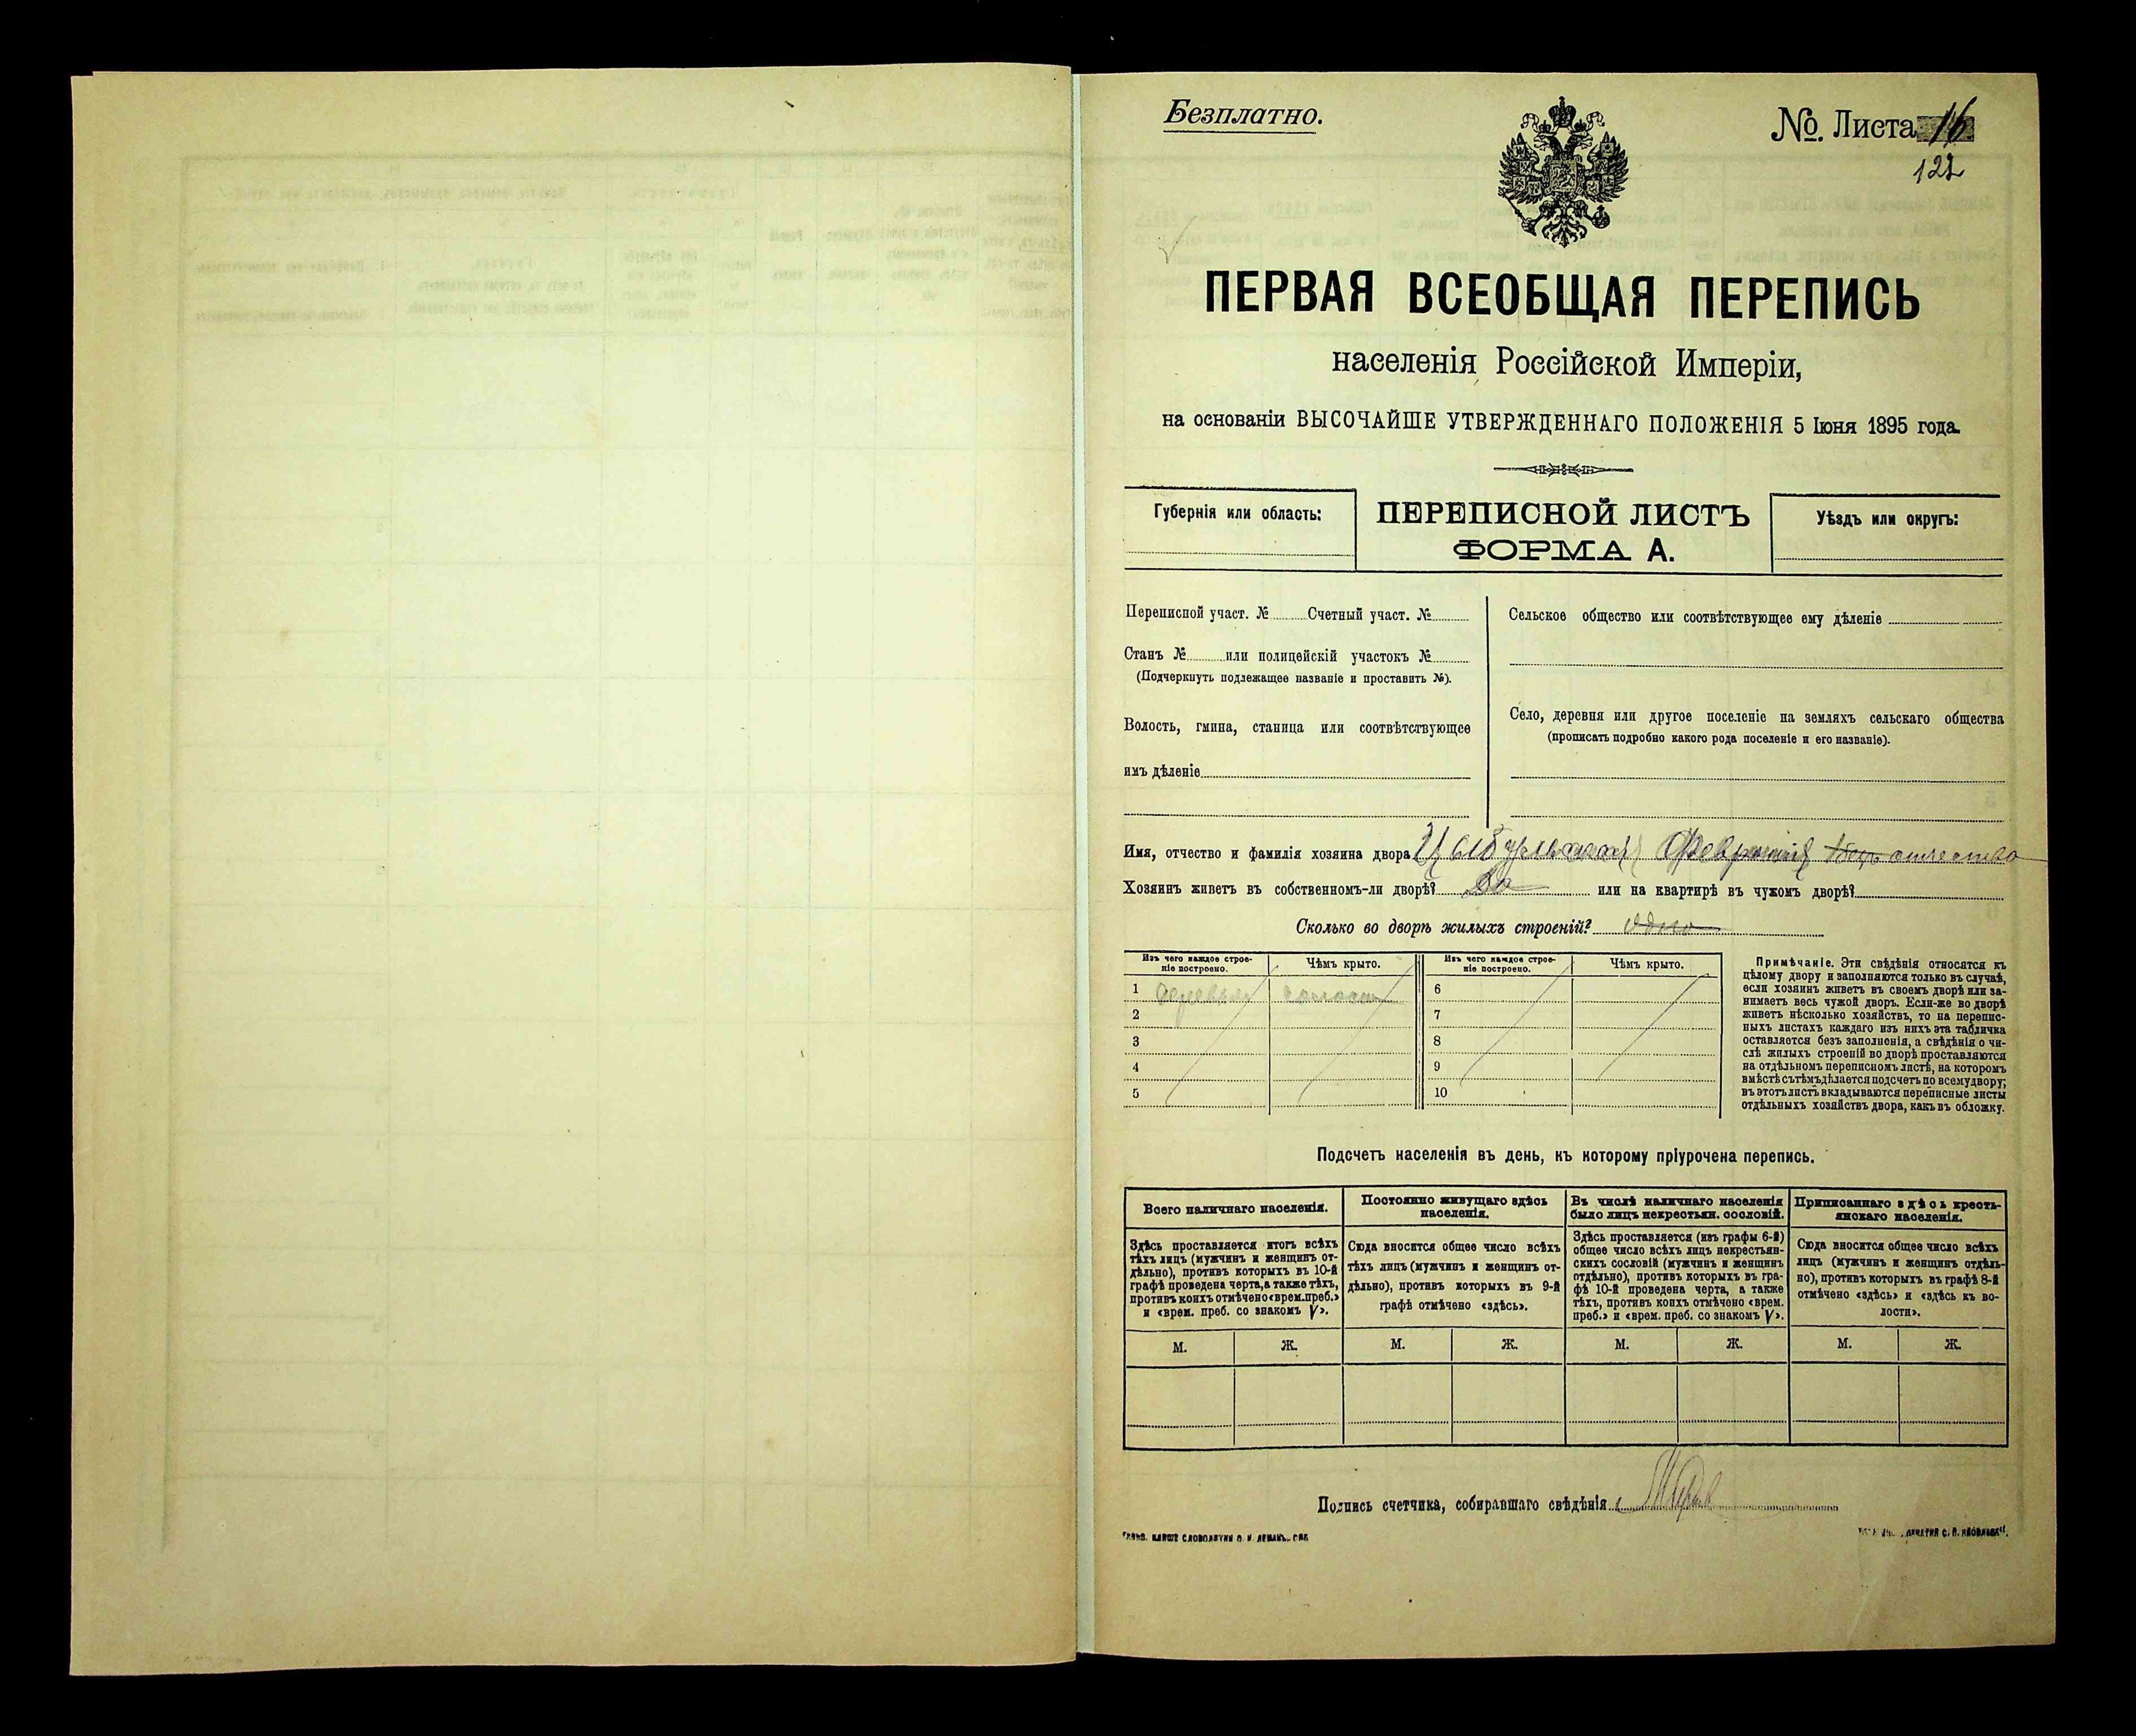 Безплатно.
№ Листа 16
122
ПЕРВАЯ ВСЕОБЩАЯ ПЕРЕПИСЬ
населенія Россійской Имперіи,
на основаніи ВЫСОЧАЙШЕ УТВЕРЖДЕННАГО ПОЛОЖЕНІЯ 5 Іюня 1895 года.
Губернія или область:
ПЕРЕПИСНОЙ ЛИСТЪ
ФОРМА А.
Уѣздъ или округъ:
Переписной участ. № Счетный участ. №
Станъ № или полицейскій участокъ №
(Подчеркнуть подлежащее названіе и проставить №).
Волость, гмина, станица или соотвѣтствующее
имъ дѣленіе
Сельское общество или соотвѣтствующее ему дѣленіе
Село, деревня или другое поселеніе на земляхъ сельскаго общества
(прописать подробно какого рода поселеніе и его названіе).
Имя, отчество и фамилія хозяина двора Цыбульская Феврония безъ отчества
Хозяинъ живетъ въ собственномъ-ли дворѣ? Да или на квартирѣ въ чужомъ дворѣ?
Сколько во дворѣ жилыхъ строеній? одно
Изъ чего каждое строе-
ніе построено.
Чѣмъ крыто.
Изъ чего каждое строе-
ніе построено.
Чѣмъ крыто.
1 6
2 7
3 8
4 9
5 10
Примѣчаніе. Эти свѣдѣнія относятся къ
цѣлому двору и заполняются только въ случаѣ,
если хозяинъ живетъ въ своемъ дворѣ или за-
нимаетъ весь чужой дворъ. Если-же во дворѣ
живетъ нѣсколько хозяйствъ, то на перепис-
ныхъ листахъ каждаго изъ нихъ эта табличка
оставляется безъ заполненія, а свѣдѣнія о чи-
слѣ жилыхъ строеній во дворѣ проставляются
на отдѣльномъ переписномъ листѣ, на которомъ
вмѣстѣ съ тѣмъ дѣлается подсчетъ по всему двору;
въ этотъ листъ вкладываются переписные листы
отдѣльныхъ хозяйствъ двора, какъ въ обложку.
Подсчетъ населенія въ день, къ которому пріурочена перепись.
Всего наличнаго населенія.
Здѣсь проставляется итогъ всѣхъ
тѣхъ лицъ (мужчинъ и женщинъ от-
дѣльно), противъ которыхъ въ 10-й
графѣ проведена черта, а также тѣхъ,
противъ коихъ отмѣчено «врем. преб.»
и «врем. преб. со знакомъ V».
Постоянно живущаго здѣсь
населенія.
Сюда вносится общее число всѣхъ
тѣхъ лицъ (мужчинъ и женщинъ от-
дѣльно), противъ которыхъ въ 9-й
графѣ отмѣчено «здѣсь».
Въ числѣ наличнаго населенія
было лицъ некрестьян. сословій.
Здѣсь проставляется (изъ графы 6-й)
общее число всѣхъ лицъ некрестьян-
скихъ сословій (мужчинъ и женщинъ
отдѣльно), противъ которыхъ въ гра-
фѣ 10-й проведена черта, а также
тѣхъ, противъ коихъ отмѣчено «врем.
преб.» и «врем. преб. со знакомъ V».
Приписаннаго здѣсь кресть-
янскаго населенія.
Сюда вносится общее число всѣхъ
лицъ (мужчинъ и женщинъ отдѣль-
но), противъ которыхъ въ графѣ 8-й
отмѣчено «здѣсь» и «здѣсь къ во-
лости».
М. Ж. М. Ж. М. Ж. М. Ж.
Подпись счетчика, собиравшаго свѣдѣнія